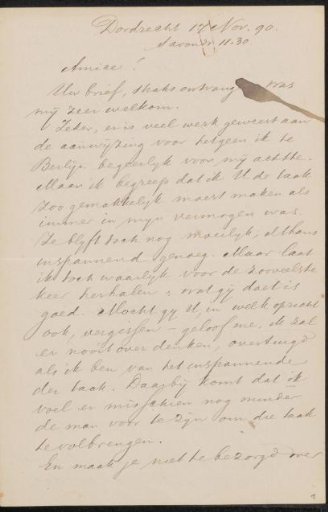 Dordrecht 17 Nov. 90.
's avonds 11.30
Amice!
Uw brief, straks ontvangen was
mij zeer welkom.
Zeker, er is veel werk geweest aan
de aanwijzing voor hetgeen ik te
Berlijn begeerlijk voor mij achtte.
Maar ik begreep dat ik U de taak
zoo gemakkelijk moest maken als
immer in mijn vermogen was.
Ze blijft toch nog moeilijk, althans
inspannend genoeg. Maar laat
ik toch waarlijk voor de zooveelste
keer herhalen: wat gij doet is
goed. Mocht gij iets, in welk opzicht
ook, vergeten – geloof me, ik zal
er nooit over denken, overtuigd
als ik ben van het inspannende
der taak. Daarbij komt dat ik
voel er misschien nog minder
de man voor te zijn om die taak
te volbrengen.
En maak je niet te bezorgd over